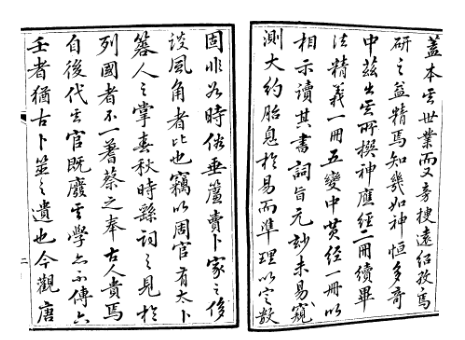 蓋本其世業而又旁搜遠紹孜之焉
研之益精焉知幾如神恒多奇
中茲出其所撰神應經二冊續畢
法精義一冊五變中黃經一冊以
相示讀其書詞旨元妙未易窺
測大約胎息於易而準理以定數
固非如時俗垂簾賣卜家之侈
談風角者比也竊以周官有太卜
簭人之掌春秋時繇詞之見於
列國者不一蓍蔡之奉古人貴焉
自後代其官既廢其學亦不傳六
壬者猶古卜筮之遺也今觀唐
二